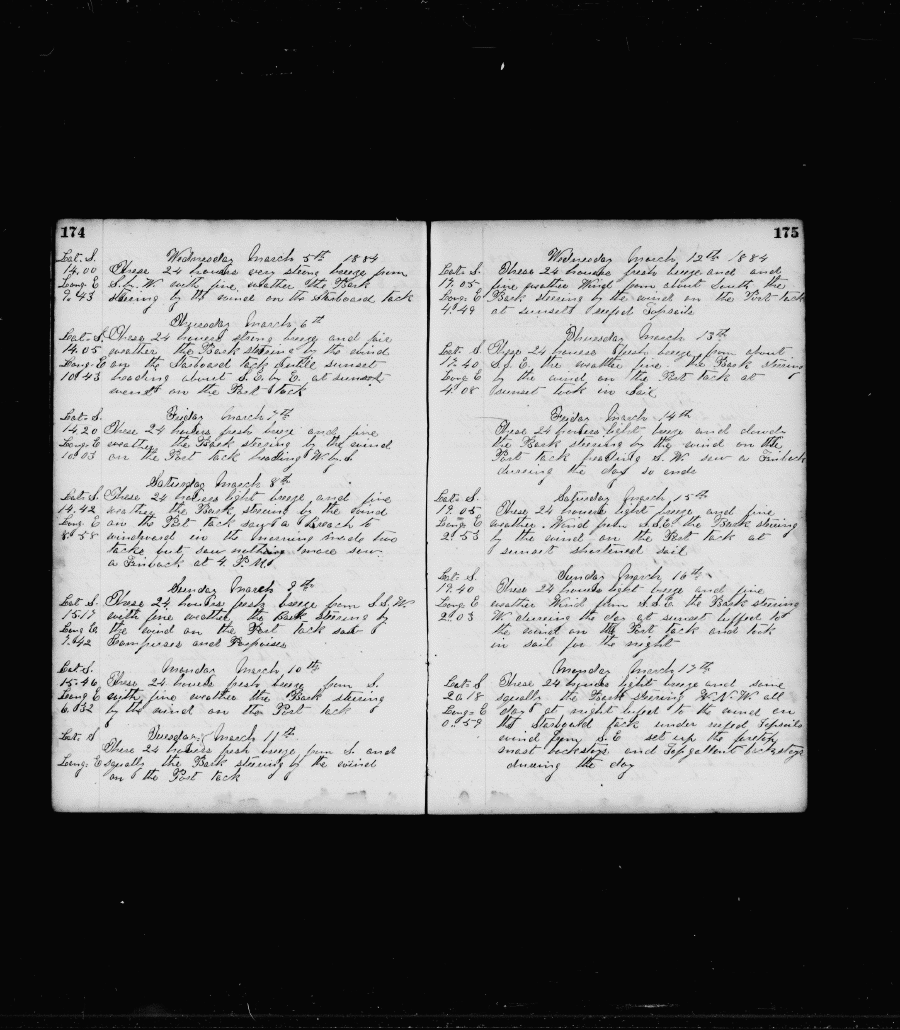 174
Wednesday March 5th 1884
Lat. S. These 24 houres very strong breeze from
14.00 S. by W with fine weather the Bark
Long. E steering by the wind on the Starboard tack
9.43
Thursday March 6th
Lat. S. These 24 houres strong breeze and fine
14.05 weather the Bark steering by the wind
Long. E on the Starboard tack untile sunset
10.43 heading about S.E. by E. at sunset
went on the Port tack
Friday March 7th
Lat. S. These 24 houres fresh breeze and fine
14.20 weather the Bark steering by the wind
Long. E on the Port tack heading W by S
10.03
Saturday March 8th
Lat. S. These 24 houres light breeze and fine
14.42 weather the Bark steering by the wind
Long. E on the Port tack saw a Breach to
8.58 windward in the morning made two
tacks but saw nothing more saw
a Finback at 4 P.M.
Sunday March 9th
Lat. S. These 24 houres fresh breeze from S.S.W
15.17 with fine weather the Bark steering by
Long. E the wind on the Port tack saw
7.42 Grampuses and Porpoises
Monday March 10th
Lat. S. These 24 houres fresh breeze from S.
15.46 with fine weather the Bark steering
Long. E by the wind on the Port tack
6.32
Tuesday March 11th
Lat. S These 24 houres fresh breeze from S. and
Long. E squally the Bark steering by the wind
on the Port tack
175
Wednesday March 12th 1884
Lat. S. These 24 houres fresh breeze and and
17.05 fine weather Wind from about South the
Long. E Bark steering by the wind on the Port tack
4.49 at sunset reefed Topsails
Thursday March 13th
Lat. S. These 24 houres fresh breeze from about
17.40 S.S.E. the weather fine the Bark steering
Long. E by the wind on the Port tack at
4.08 sunset took in Sail
Friday March 14th
These 24 houres light breeze and cloudy
the Bark steering by the wind on the
Port tack heading S.W saw a Finback
dureing the day so ends
Saturday March 15th
Lat. S. These 24 houres light breeze and fine
19.05 weather. Wind from S.S.E. the Bark steering
Long. E by the wind on the Port tack at
2.53 sunset shortened sail
Sunday March 16th
Lat. S. These 24 houres light breeze and fine
19.40 weather Wind from S.S.E. the Bark steering
Long. E W. dureing the day at sunset luffed to
2.03 the wind on the Port tack and took
in sail for the night
Monday March 17th
Lat. S These 24 houres light breeze and some
20.18 squally the Bark steering W.N.W. all
Long. E day at night lufed to the wind on
0.59 the Starboard tack under reefed Topsails
wind from S.E set up the foretop
mast backstays and Topgallent backstays
dureing the day